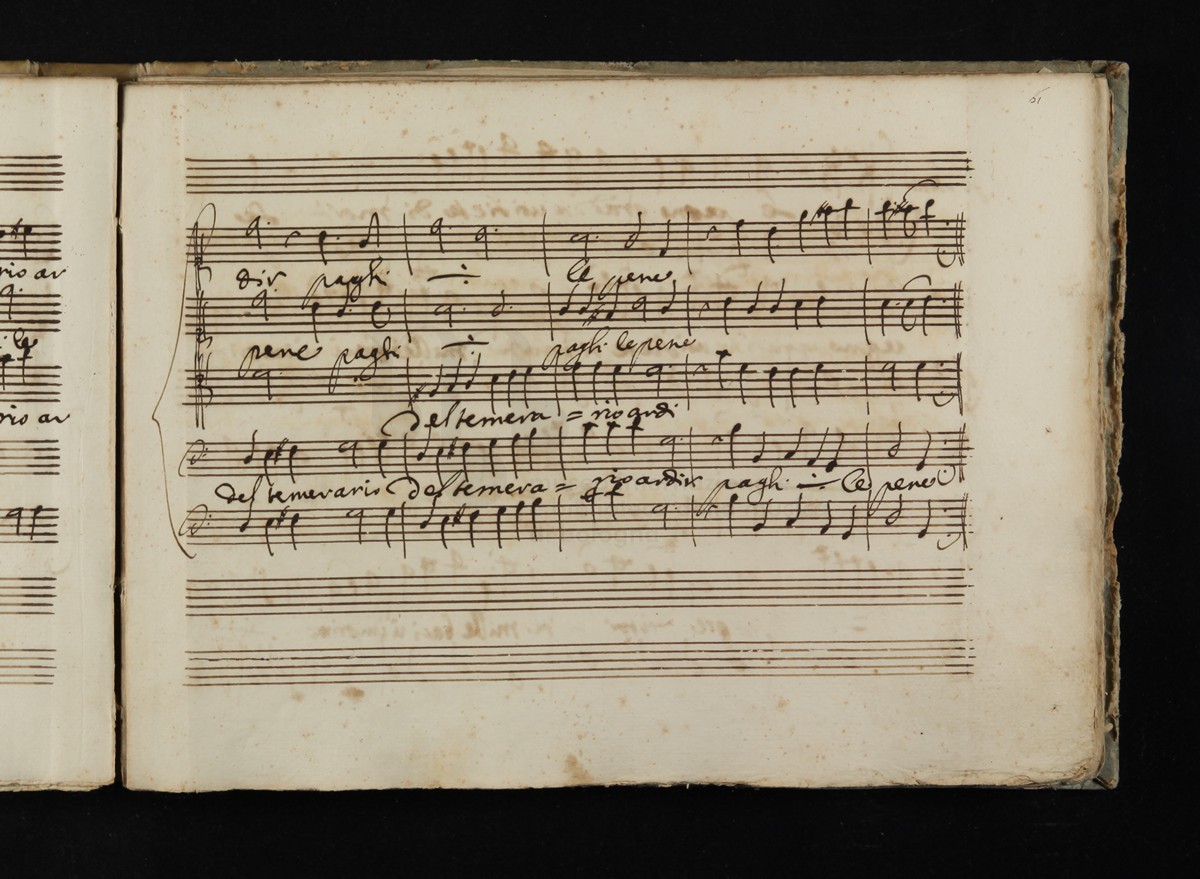 61
dir paghi le pene
pene paghi paghi le pene
del temera = rio ardi
del temerario del temera = rio ardir paghi le pene
rio ar
le
rio ar